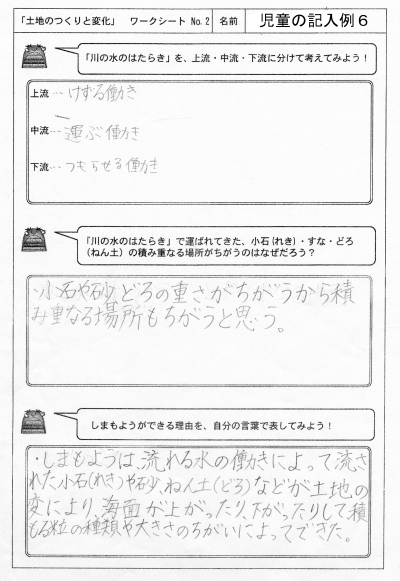 「土地のつくりと変化」 ワークシート No.2 名前 児童の記入例６
「川の水のはたらき」を、上流・中流・下流に分けて考えてみよう！
上流…けずる働き
中流…運ぶ働き
下流…つもらせる働き
「川の水のはたらき」で運ばれてきた、小石(れき)・すな・どろ
(ねん土)の積み重なる場所がちがうのはなぜだろう？
・小石や砂、どろの重さがちがうから積
み重なる場所もちがうと思う。
しまもようができる理由を、自分の言葉で表してみよう！
・しまもようは、流れる水の働きによって流さ
れた小石(れき)や砂、ねん土(どろ)などが土地の
変により、海面が上がったり、下がったりして積
もる粒の種類や大きさのちがいによってできた。